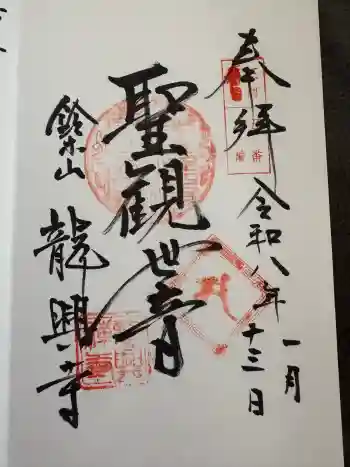 奉拝
令和八年
一月
十三日
聖観世音
鈴木山
龍興寺